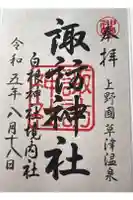 奉拝
上野國草津温泉
諏訪神社
白根神社境内社
令和五年八月十八日